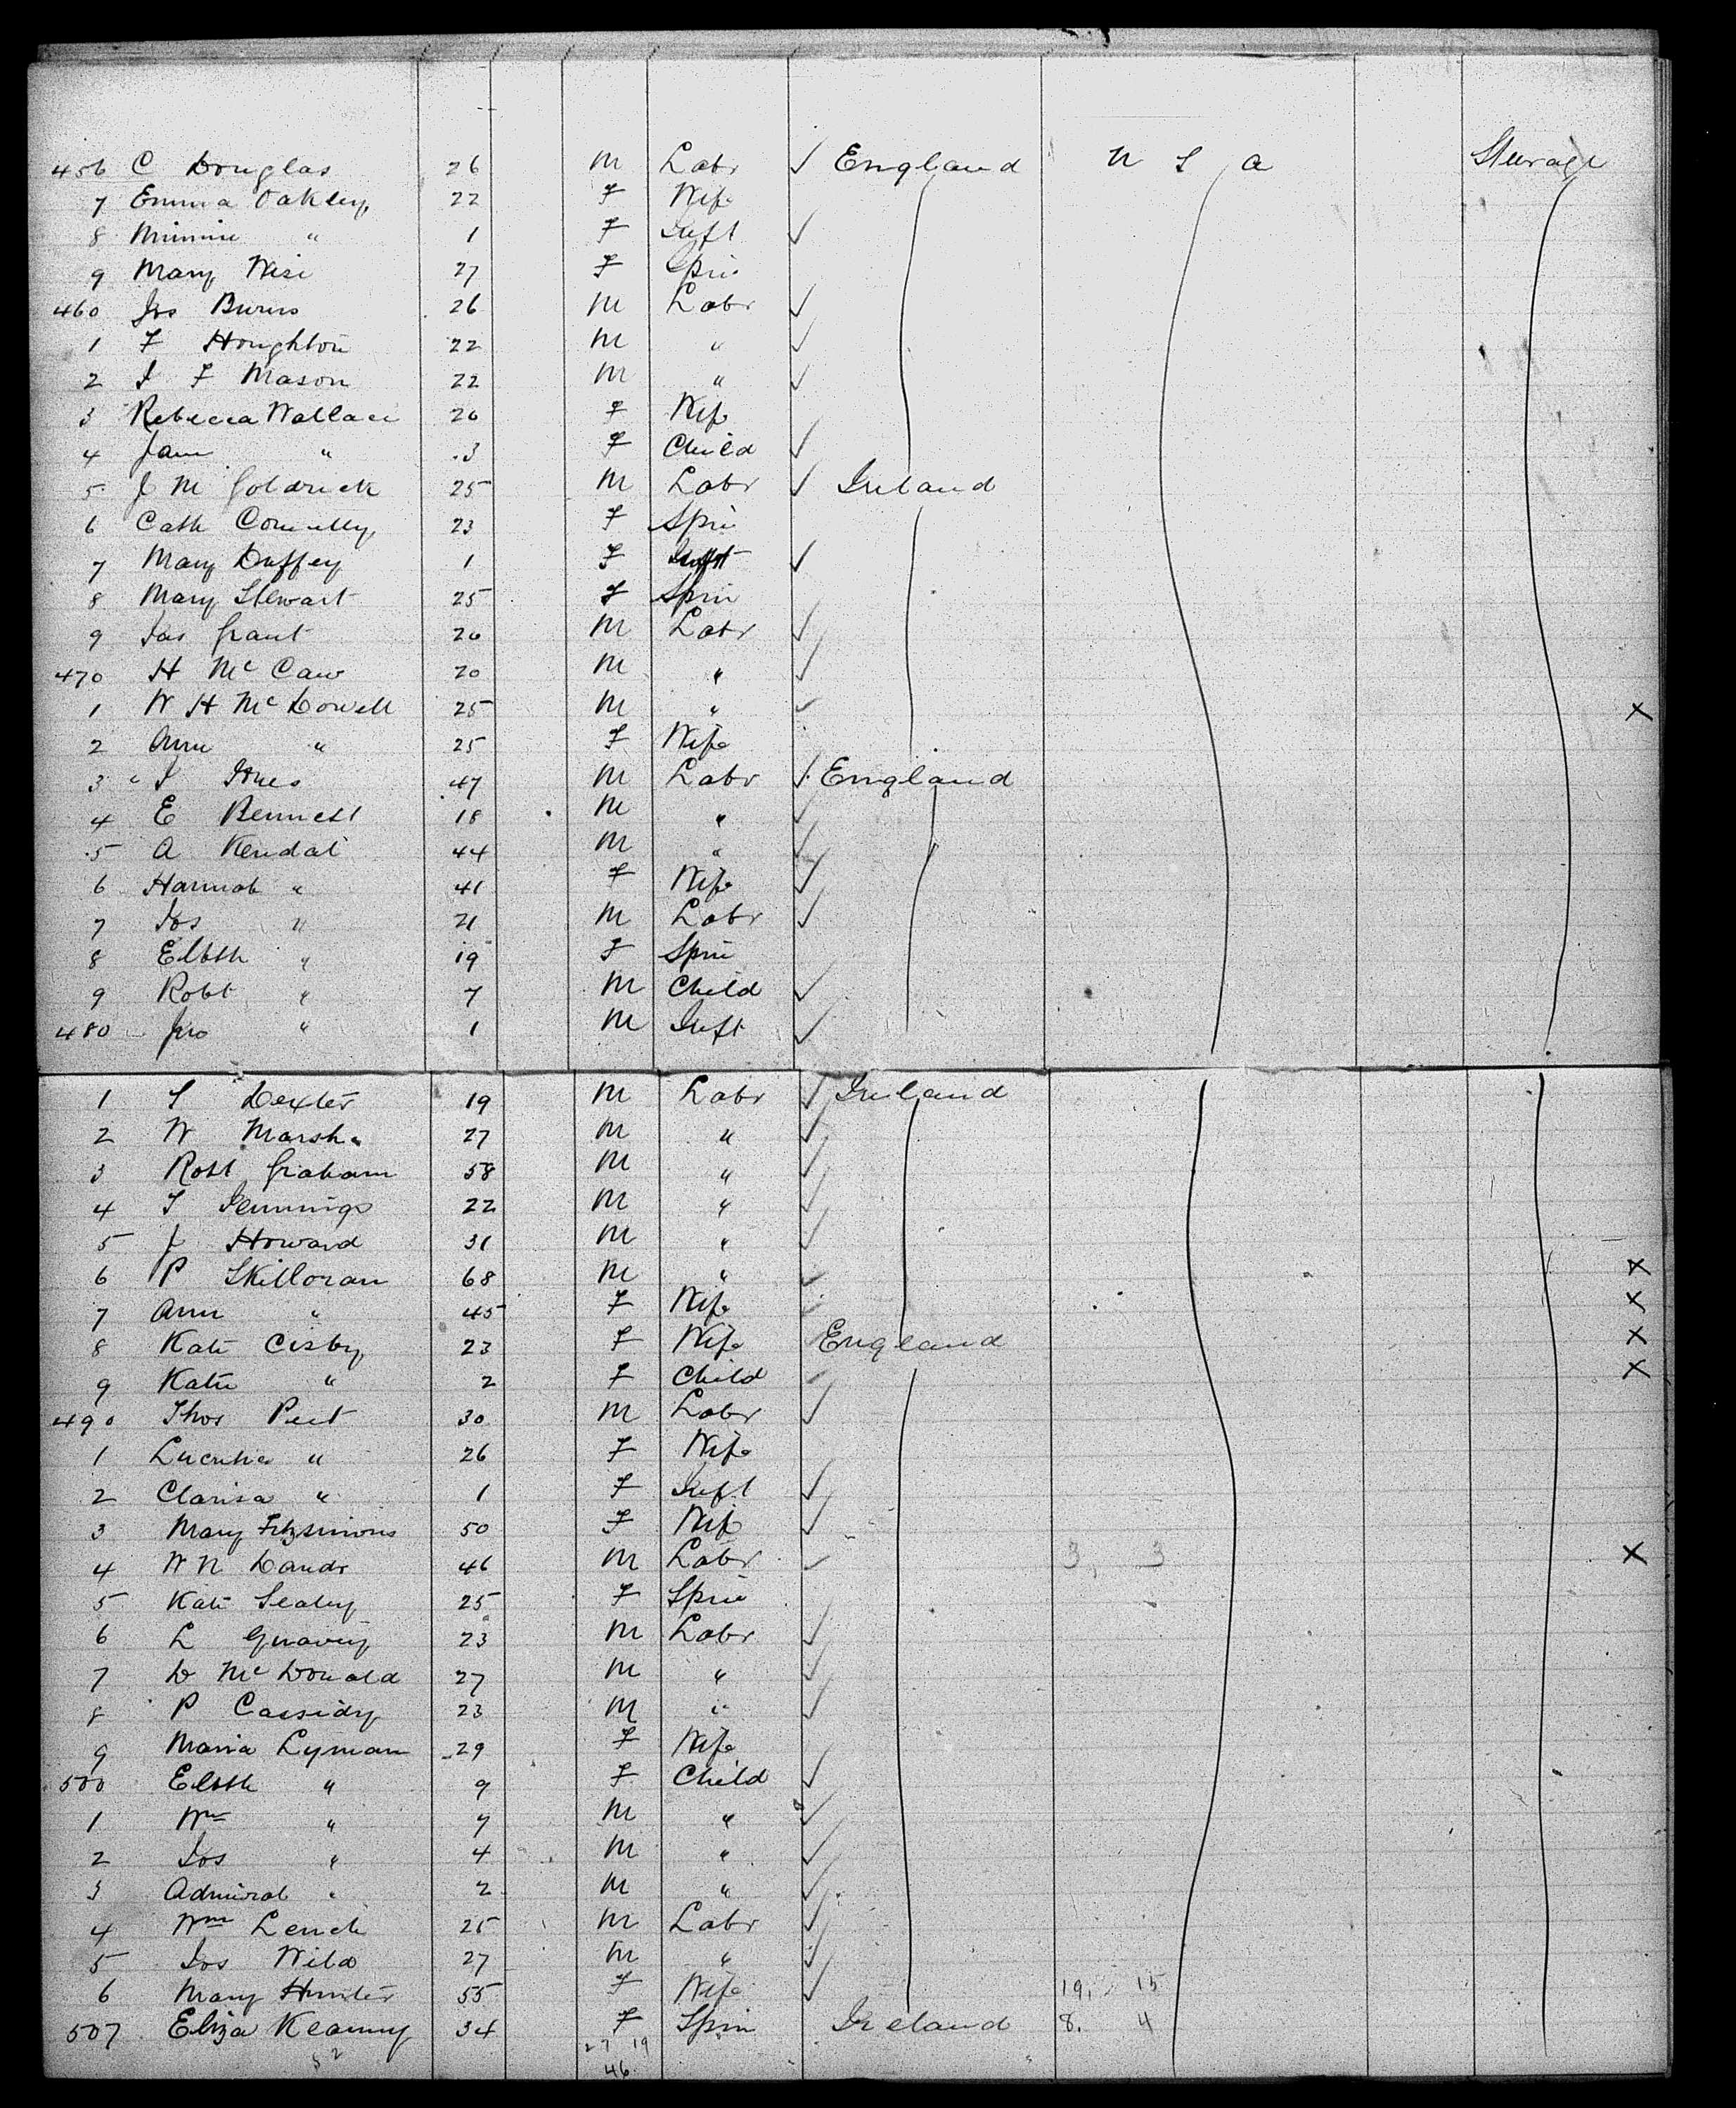 456 C Douglas 26 M Labr ✓ England U S A Steerage
7 Emma Oakley 22 F Wife
8 Minnie " 1 F Inft ✓
9 Mary Wise 27 F Spin
460 Jos Burns 26 M Labr ✓
1 F Houghton 22 M " ✓
2 J F Mason 22 M " ✓
3 Rebecca Wallace 26 F Wife
4 Jane " 3 F Child ✓
5 J Mc Goldrick 25 M Labr ✓ Ireland
6 Cath Connelly 23 F Spin
7 Mary Duffey 1 F Inft ✓
8 Mary Stewart 25 F Spin
9 Jas Grant 26 M Labr ✓
470 H Mc Caw 20 M " ✓
1 W H Mc Dowell 25 M " ✓ X
2 Ann " 25 F Wife
3 J 47 M Labr ✓ England
4 E Bennett 18 M " ✓
5 A Kendal 44 M " ✓
6 Hannah " 41 F Wife ✓
7 Jos " 21 M Labr ✓
8 Elbth " 19 F Spin
9 Robt " 7 M Child ✓
480 Jno " 1 M Inft ✓
1 T Dexter 19 M Labr ✓ Ireland
2 W Marsh 27 M " ✓
3 Robt Graham 58 M " ✓
4 T Jennings 22 M " ✓
5 J Howard 31 M " ✓
6 P Skilloran 68 M " ✓ X
7 Ann " 45 F Wife ✓ X
8 Kate Cisby 23 F Wife England X
9 Katie " 2 F Child ✓ X
490 Thos Peet 30 M Labr ✓
1 " 26 F Wife
2 Clarisa " 1 F Inft ✓
3 Mary Fitzsimons 50 F Wife ✓
4 W N Dands 46 M Labr ✓ 3, 3 X
5 Kate Sealey 25 F Spin
6 L 23 M Labr ✓
7 D Mc Donald 27 M " ✓
8 P Cassidy 23 M " ✓
9 Maria Lyman 29 F Wife
500 Elbth " 9 F Child ✓
1 Wm " 7 M " ✓
2 Jos " 4 M " ✓
3 Admiral " 2 M " ✓
4 Wm Leach 25 M Labr ✓
5 Jos Wild 27 M " ✓
6 Mary Hunter 55 F Wife ✓ 19, 15
507 Eliza Kearney 34 F Spin Ireland 8. 4
52 27 19
46